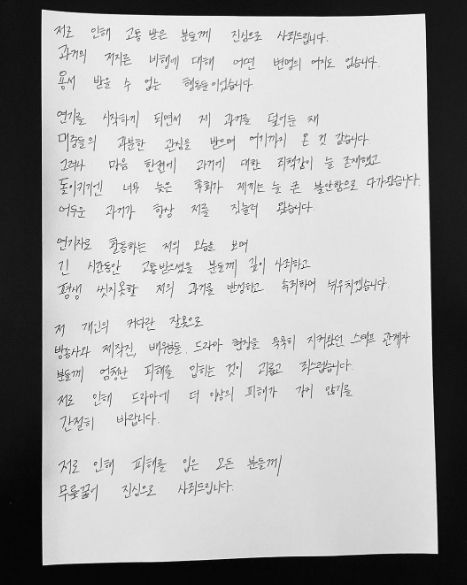 저로 인해 고통 받은 분들께 진심으로 사죄드립니다.
과거의 저지른 비행에 대해 어떤 변명의 여지도 없습니다.
용서 받을 수 없는 행동들이었습니다.
연기를 시작하게 되면서 제 과거를 덮어둔 채
대중들의 과분한 관심을 받으며 여기까지 온 것 같습니다.
그러나 마음 한켠에 과거에 대한 죄책감이 늘 존재했고
돌이키기엔 너무 늦은 후회가 제게는 늘 큰 불안함으로 다가왔습니다.
어두운 과거가 항상 저를 짓눌러 왔습니다.
연기자로 활동하는 저의 모습을 보며
긴 시간동안 고통 받으셨을 분들께 깊이 사죄하고
평생 씻지못할 저의 과거를 반성하고 속죄하며 뉘우치겠습니다.
저 개인의 커다란 잘못으로
방송사와 제작진, 배우분들, 드라마 현장을 묵묵히 지켜왔던 스태프 관계자
분들께 엄청난 피해를 입히는 것이 괴롭고 죄스럽습니다.
저로 인해 드라마에 더 이상의 피해가 가지 않기를
간절히 바랍니다.
저로 인해 피해를 입은 모든 분들께
무릎꿇어 진심으로 사죄드립니다.